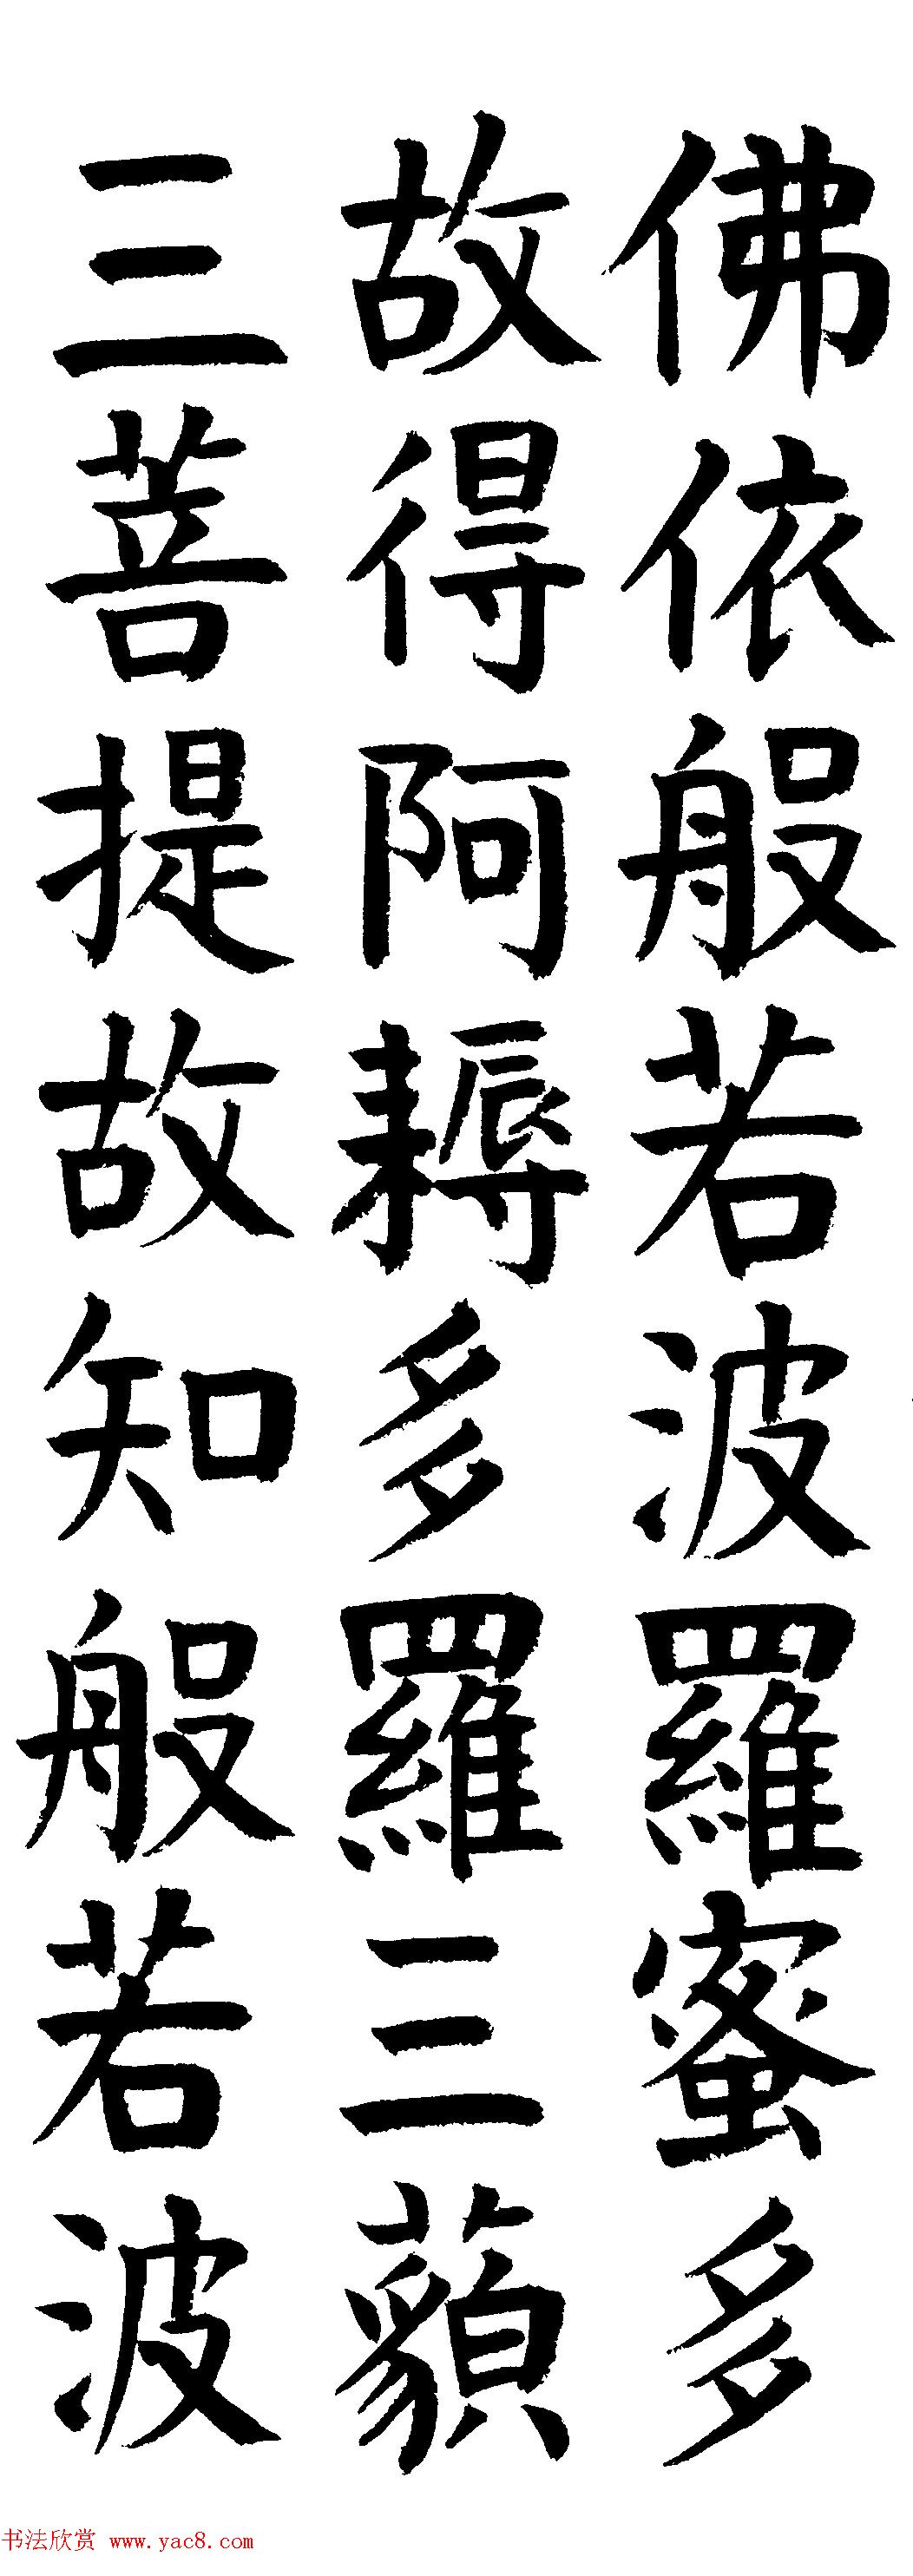 佛依般若波羅蜜多
故得阿耨多羅三藐
三菩提故知般若波
书法欣赏 www.yac8.com